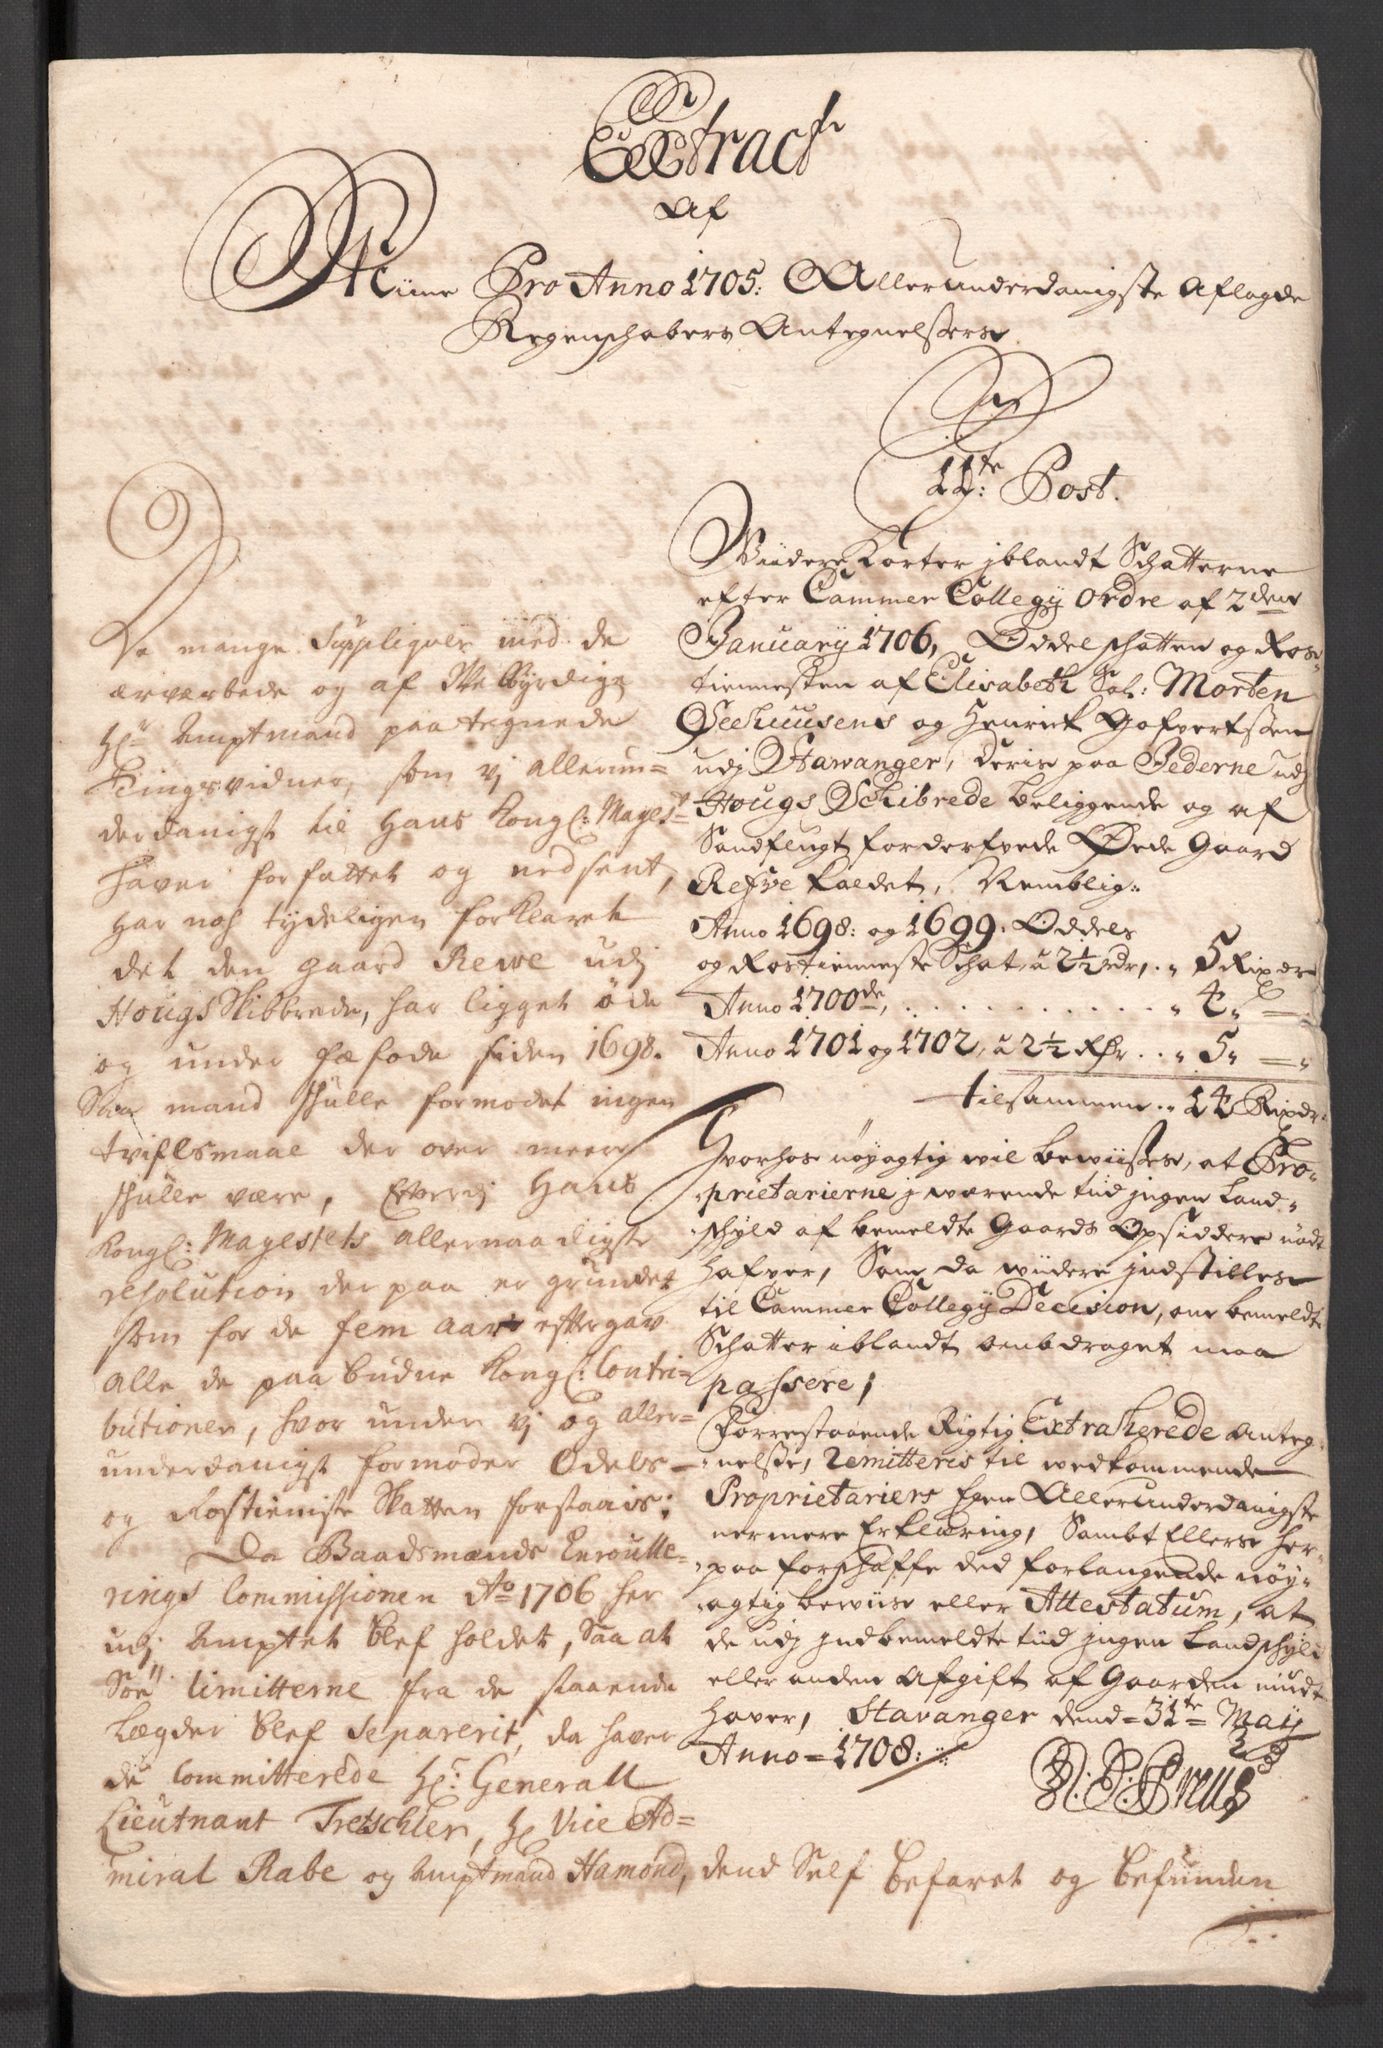 Extract
Af
Miine Pro Anno 1705: Allerunderdanigste Aflagde
Regenschabers Antegnelsser
11te: Post.
Viidere Korter iblandt Schatterne
efter Cammer Collegy Ordre af 2den
January 1706, Oddelschatten og Ros-
tiennesten af Elisabeth Sal: Morten
Seehuusens og Henrich Gofvertssen
udj Stawanger, deris paa Jederne udj
Hougs Schibrede beliggende og af
Sandflugt forderfvede Øede Gaard
Refve kaldet, Nemblig:
Anno 1698: og 1699. Oddels
og Rostienneste Schat, a 2½ rdr, .. 5 Rixdr
Anno 1700de, . . . . . . . 4 —
Anno 1701 og 1702, a 2½ Rdr . . 5 —
tilsammen .. 14 Rixdr.
Hvorhos nøyagtig wil bewiisses, at Pro-
prietarierne j wærende tiid jngen Land-
schyld af bemeldte Gaards Opsiddere nødt
hafver, Som da wiidere jndstilles
til Cammer Collegy Decision, om bemeldte
Schatter iblandt ombdraget maa
passere;
Forrestaaende Rigtig Extraherede Anteg-
nelsse, Remitteris til wedkommende
Proprietariers Egen Allerunderdanigste
nermere Erklæring, Sambt Ellers her-
paa forschaffe ded forlangende nøy-
agtig bewiis eller Attestatum, at
de udj jndbemeldte tiid jngen Landschyld
eller anden Afgift af Gaarden nudt
haver, Stavanger dend 31te May
Anno 1708:
De mange Suppliqver med de
ærværdede og af Velbyrdige
Hr Amptmand paategnede
Tingsvidner, som vj allerun-
derdanigst til Hans Kongl: Mayest
haver forfattet og nedsent,
har noch tydeligen forklaret
det den gaard Rewe udj
Hougs Skibbrede, har ligget øde
og under fæfode siden 1698.
Saa mand skulle formodet ingen
tvifelsmaal der over meere
skulle være, Efterdj Hans
Kongl: Mayestets allernaadigste
resolution der paa er grundet
som for de fem aar eftergav
alle de paabudne Kongl: Contri-
butioner, hvor under vj og aller-
underdanigst formoder Odels-
og Rostieniste Skatten forstaais;
Da Baadsmænds Enroulle-
rings Commissionen Ao 1706 her
udj Amptet blef holdet, Saa at
Søe limitterne fra de staaende
Lægder blef separerit, da haver
de Committerede Hr: Generall
Lieutnant Tretschler, Hr Vice Ad-
miral Rabe og Amptmand Hamond, dend Self befaret og befunden